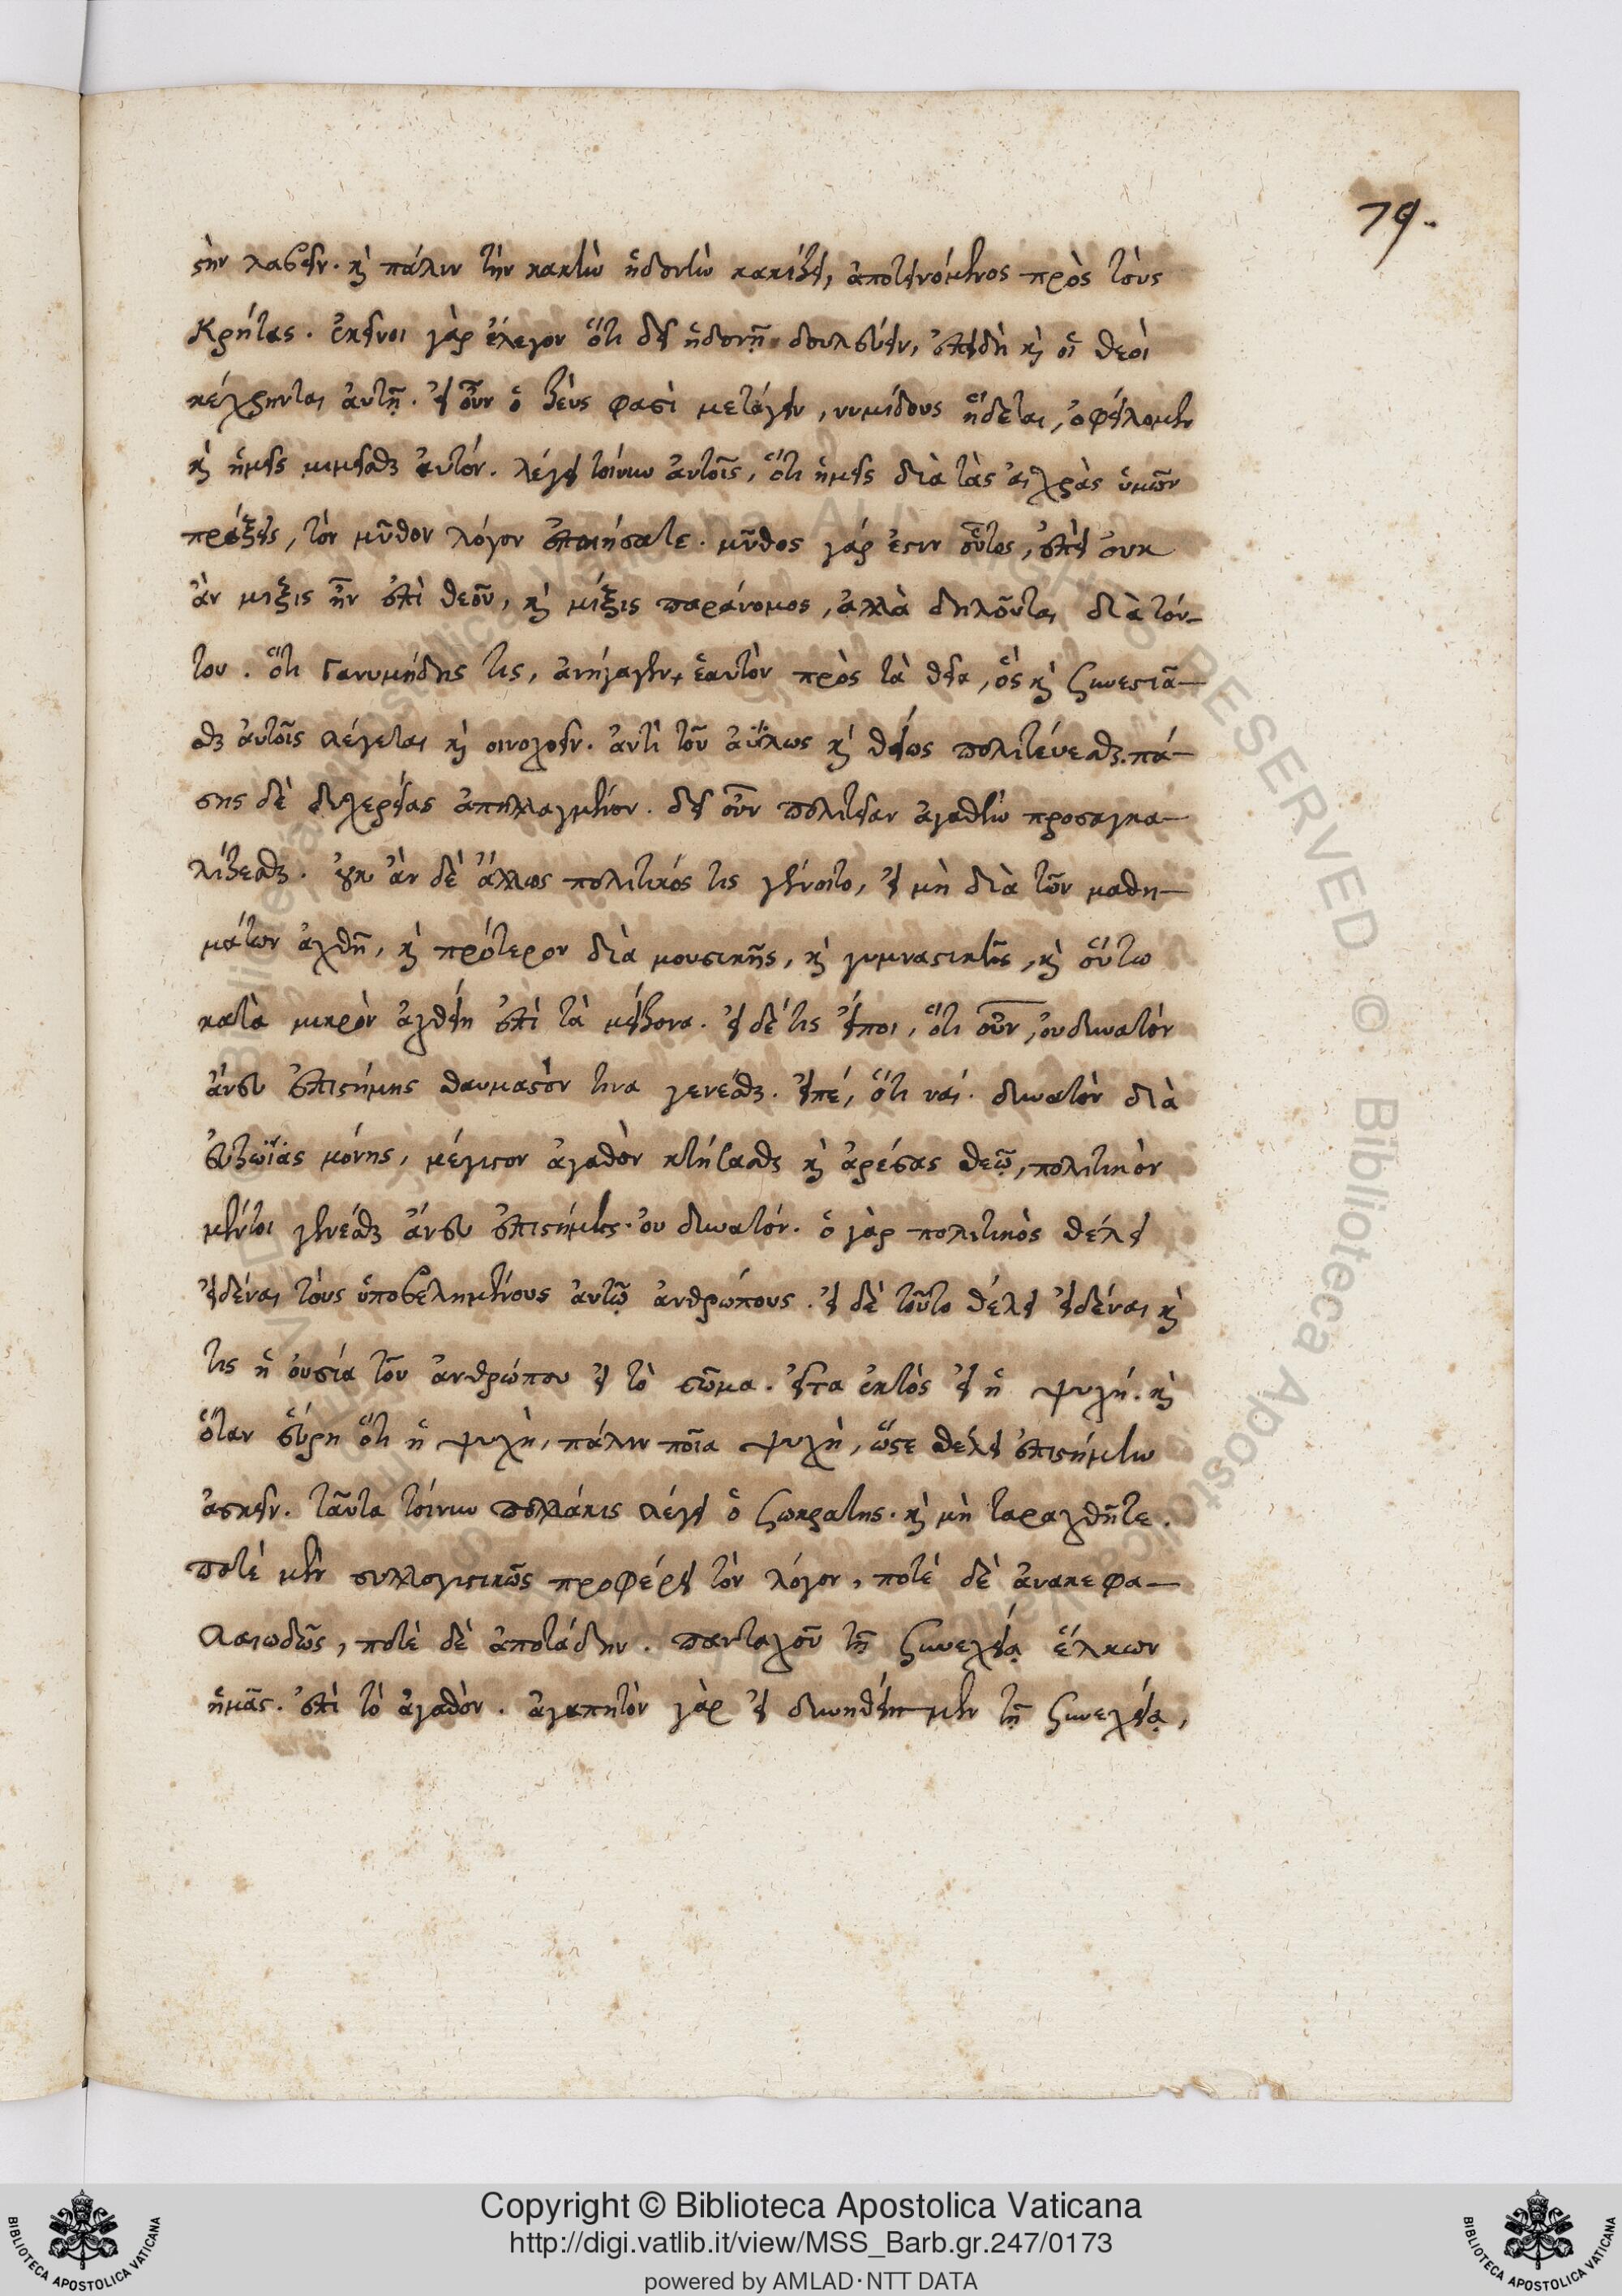 79.
στὴν λαβεῖν. καὶ πάλιν τὴν κακὴν ἡδονὴν κακίζει, ἀποτεινόμενος πρὸς τοὺς
Κρήτας. ἐκεῖνοι γὰρ ἔλεγον ὅτι δεῖ ἡδονῇ δουλεύειν, ἐπειδὴ καὶ οἱ θεοὶ
κέχρηνται αὐτῇ. εἰ οὖν ὁ ζεὺς φασὶ μετάγειν, νυμίδους ἥδεται, ὀφείλομεν
καὶ ἡμεῖς μιμεῖσθαι αὐτόν. λέγει τοίνυν αὐτοῖς, ὅτι ἡμεῖς διὰ τὰς αἰχρὰς ὑμῶν
πράξεις, τὸν μῦθον λόγον ἐποιήσατε. μῦθος γάρ ἐστιν οὗτος, ἐπεὶ οὐκ
ἂν μιξις ἦν ἐπὶ θεοῦ, καὶ μίξις παράνομος, ἀλλὰ δηλοῦται διὰ τού-
του. ὅτι Γανυμήδης τις, ἀνήγαγεν ἑαυτὸν πρὸς τὰ θεῖα, ὃς καὶ συνεστιᾶ-
σθαι αὐτοῖς λέγεται καὶ οινοχοεῖν. ἀντὶ τοῦ ἀΰλως καὶ θείως πολιτεύεσθαι. πά-
σης δὲ δυχερείας ἀπηλλαγμένον. δεῖ οὖν πολιτείαν ἀγαθὴν προσαγκα-
λίζεσθαι. οὐκ ἂν δὲ ἄλλως πολιτικός τις γένοιτο, εἰ μὴ διὰ τῶν μαθη-
μάτων ἀχθῇ, καὶ πρότερον διὰ μουσικῆς, καὶ γυμναστικῆς, καὶ οὕτω
κατὰ μικρὸν ἀχθείη ἐπὶ τὰ μείζονα. εἰ δέ τις εἴποι, ὅτι οὖν, οὐ δυνατὸν
ἄνευ ἐπιστήμης θαυμαστόν τινα γενέσθαι. εἰπέ, ὅτι ναί. δυνατὸν διὰ
εὐζωΐας μόνης, μέγιστον ἀγαθὸν κτήσασθαι καὶ ἀρέσας θεῷ, πολιτικὸν
μέντοι γενέσθαι ἄνευ ἐπιστήμης. οὐ δυνατόν. ὁ γὰρ πολιτικὸς θέλει
εἰδέναι τοὺς ὑποβελημένους αὐτῷ ἀνθρώπους. εἰ δὲ τοῦτο θέλει εἰδέναι καὶ
τις ἡ οὐσία τοῦ ἀνθρώπου εἰ τὸ σῶμα. εἶτα ἐκτὸς εἰ ἡ ψυχή. καὶ
ὅταν εὕρη ὅτι ἡ ψυχὴ, πάλιν ποῖα ψυχὴ, ὥστε θέλει ἐπιστήμην
ἀσκεῖν. ταῦτα τοίνυν πολλάκις λέγει ὁ Σωκράτης. καὶ μὴ ταραχθῆτε.
ποτὲ μὲν συλλογιστικῶς προφέρει τὸν λόγον, ποτὲ δὲ ἀνακεφα-
λαιωδῶς, ποτὲ δὲ ἀποτάδην. πανταχοῦ τῇ συνεχείᾳ ἕλκων
ἡμᾶς. ἐπὶ τὸ ἀγαθόν. ἀγαπητὸν γὰρ εἰ δυνηθείημεν τῇ συνεχείᾳ,
Copyright © Biblioteca Apostolica Vaticana
http://digi.vatlib.it/view/MSS_Barb.gr.247/0173
powered by AMLAD·NTT DATA